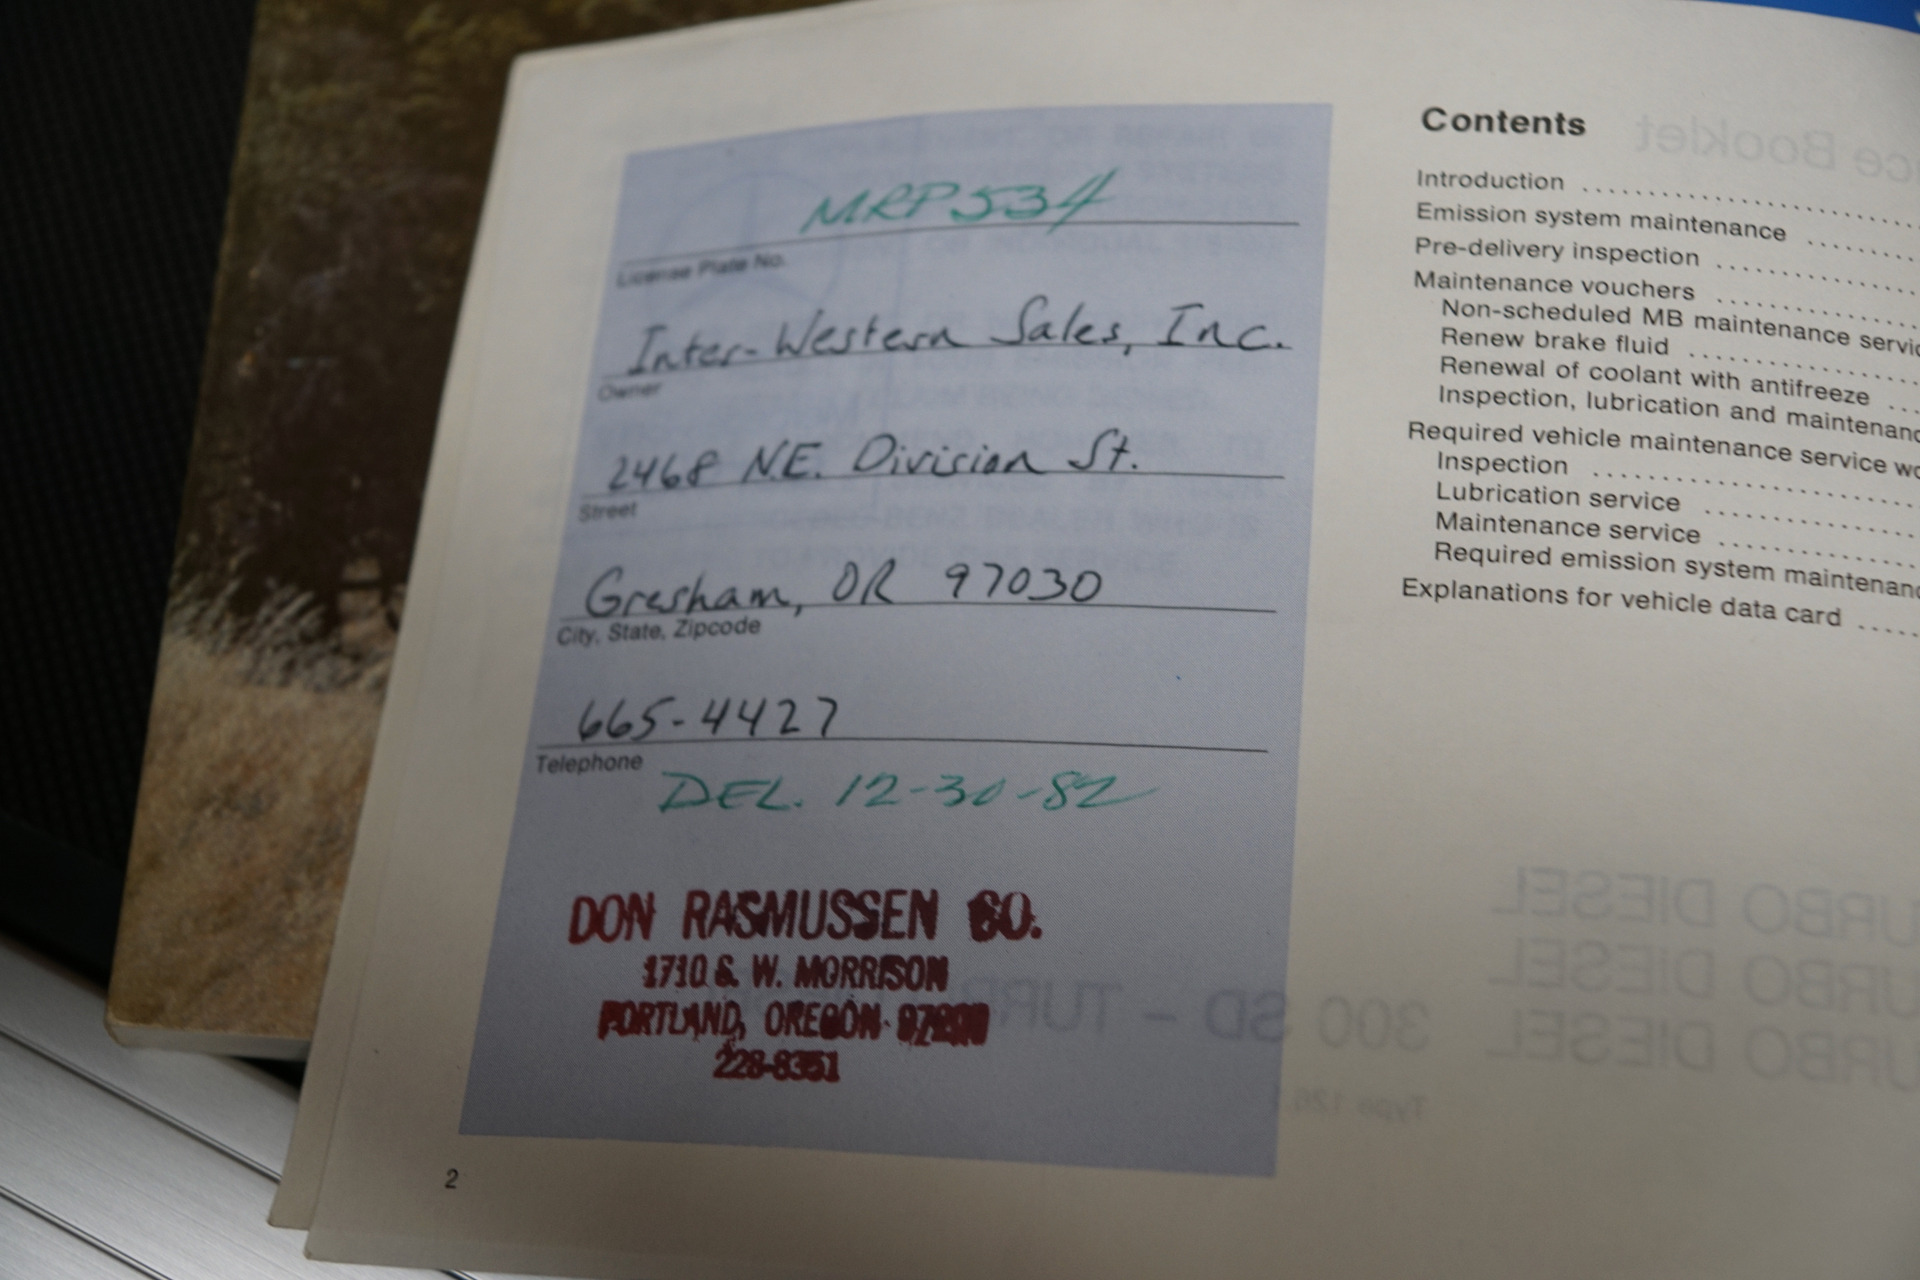 MRP534
License Plate No.
Inter-Western Sales, Inc.
Owner
2468 N.E. Division St.
Street
Gresham, OR 97030
City, State, Zipcode
665-4427
Telephone
DEL. 12-30-82
DON RASMUSSEN CO.
1710 S. W. MORRISON
PORTLAND, OREGON
228-8351
2
Contents
Introduction
Emission system maintenance
Pre-delivery inspection
Maintenance vouchers
Non-scheduled MB maintenance
Renew brake fluid
Renewal of coolant with antifreeze
Inspection, lubrication and
Required vehicle maintenance service
Inspection
Lubrication service
Maintenance service
Required emission system
Explanations for vehicle data card